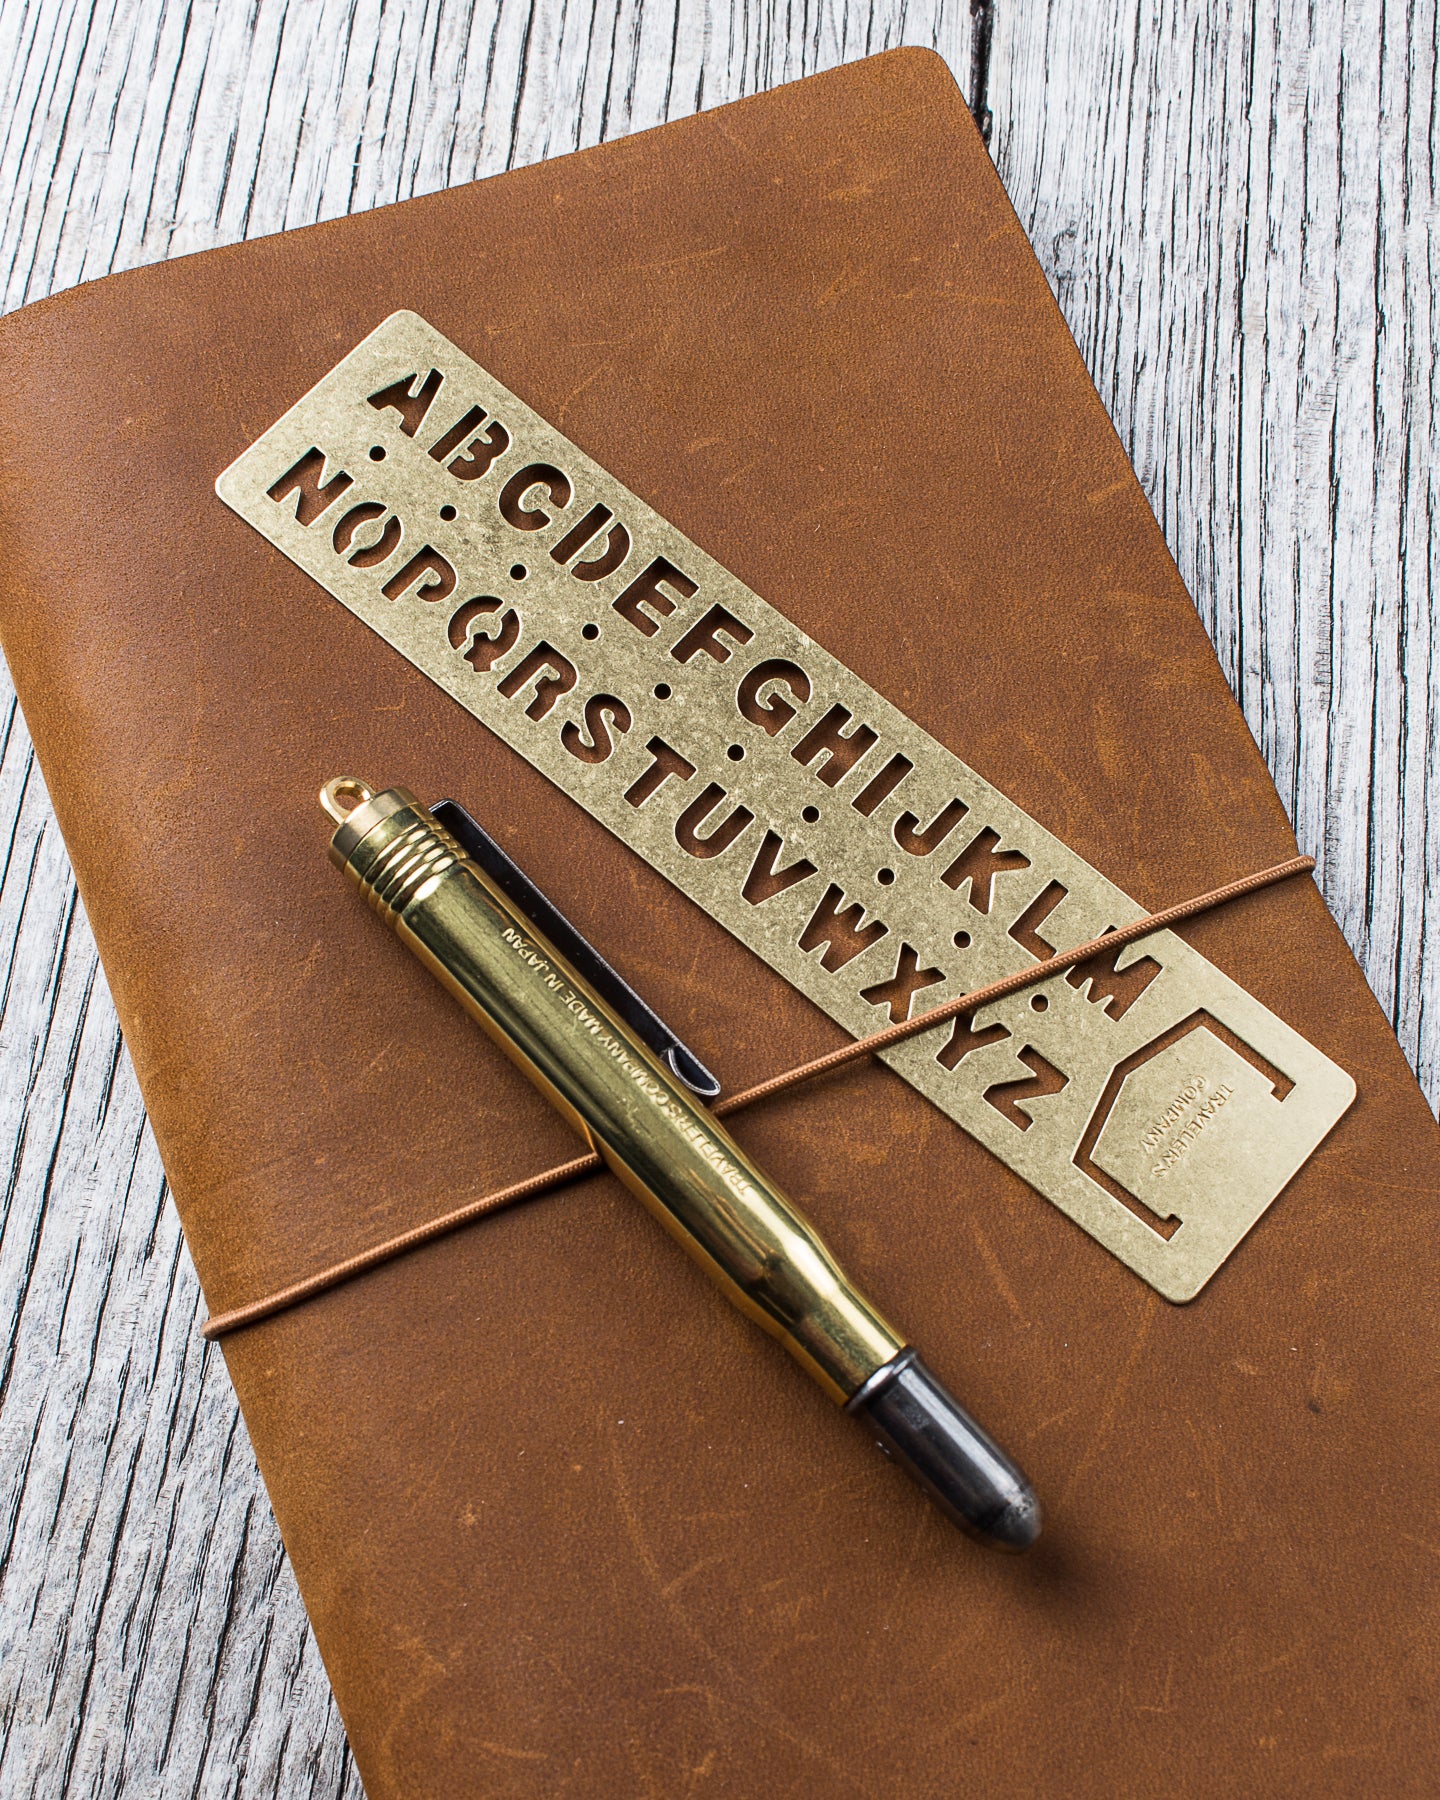 ABCDEFGHIJKLM
NOPQRSTUVWXYZ
TRAVELER'S
COMPANY
TRAVELER'S COMPANY MADE IN JAPAN